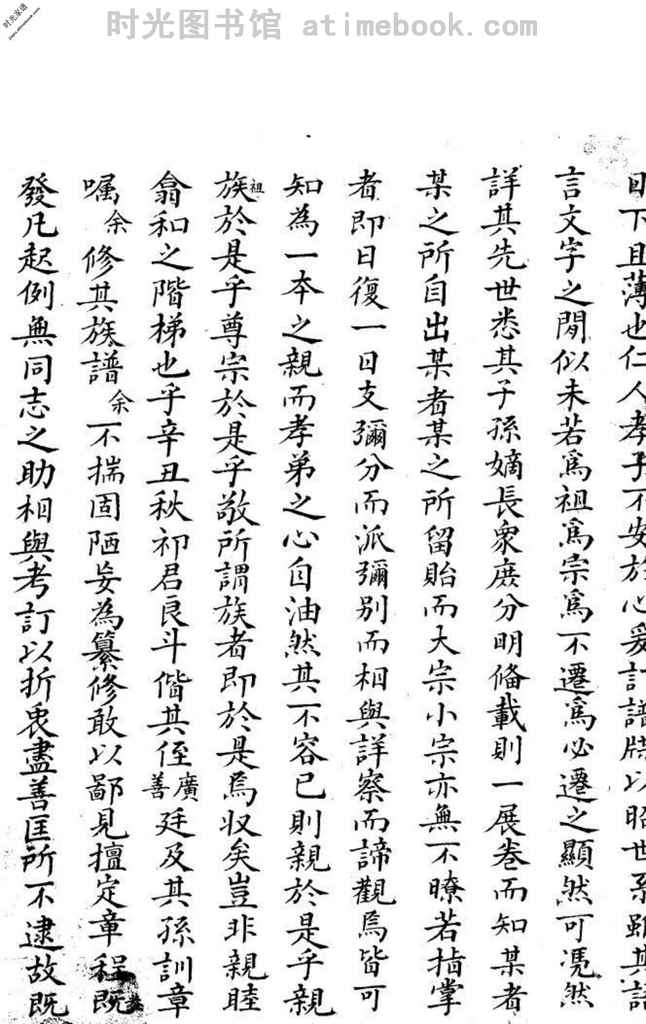 时光图书馆 atimebook.com
时光家谱
www.atimebook.com
日下且薄也仁人孝子不安於心爰訂譜牒以昭世系雖其語
言文字之間似未若爲祖爲宗爲不遷爲必遷之顯然可憑然
詳其先世悉其子孫嫡長衆庶分明俻載則一展卷而知某者
某之所自出某者某之所留貽而大宗小宗亦無不暸若指掌
者即日復一日支彌分而派彌別而相與詳察而諦觀焉皆可
知為一本之親而孝弟之心自油然其不容已則親於是乎親
族祖於是乎尊宗於是乎敬所謂族者即於是焉収矣豈非親睦
翕和之階梯也乎辛丑秋祁君良斗偕其侄廣善廷及其孫訓章
嘱余修其族譜余不揣固陋妄為纂修敢以鄙見擅定章程既
發凡起例無同志之助相與考訂以折衷盡善匡所不逮故既